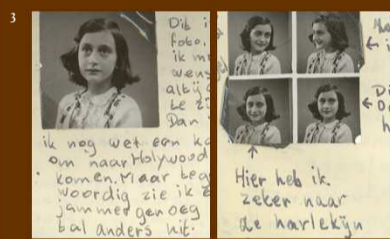 3
Dit i
foto,
ik m
wens
altij
te z
Dan
ik nog wel een ka
om naar Holywood
komen. Maar teg
woordig zie ik e
jammer genoeg
tal anders uit.
Hier heb ik
zeker naar
de harlekijn